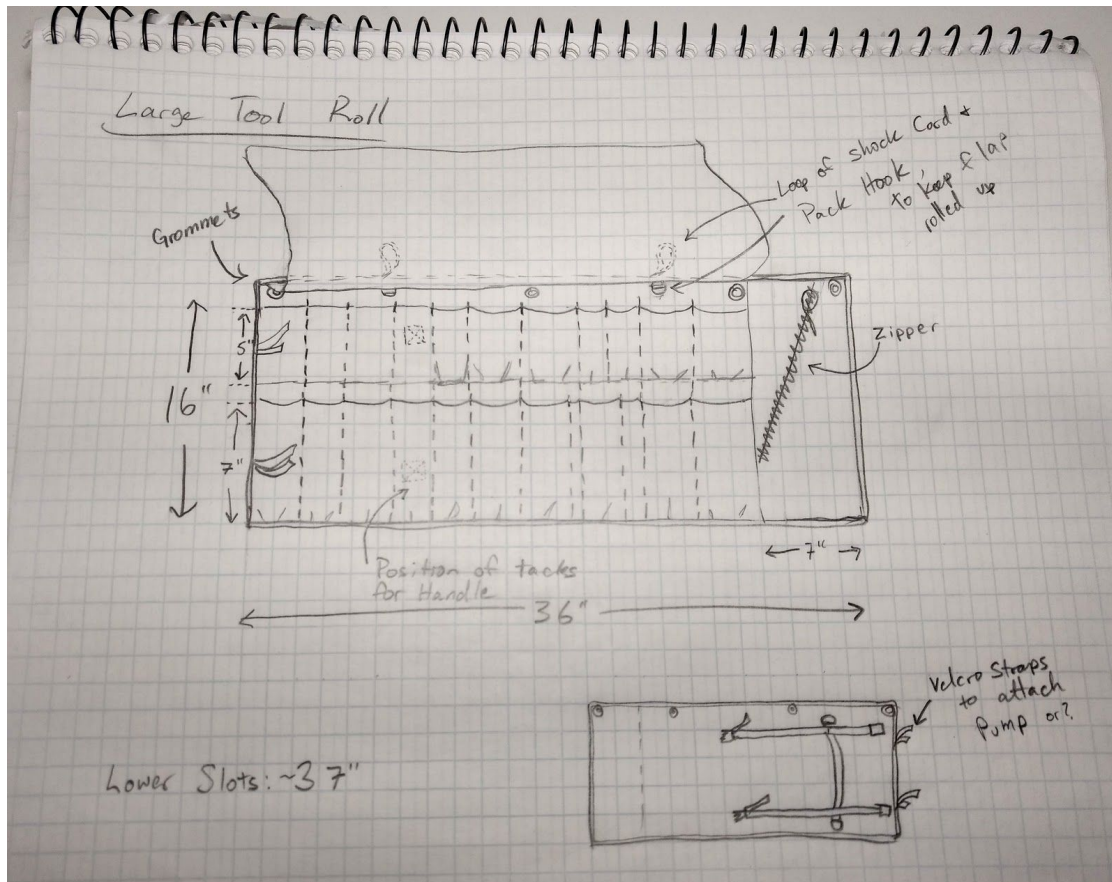 Large Tool Roll
Loop of Shock Cord &
Pack Hook,
to keep flap
rolled up
Grommets
5"
16"
7"
Zipper
7"
Position of tacks
for Handle
36"
Velcro Straps
to attach
Pump or?
Lower Slots: ~3 7"